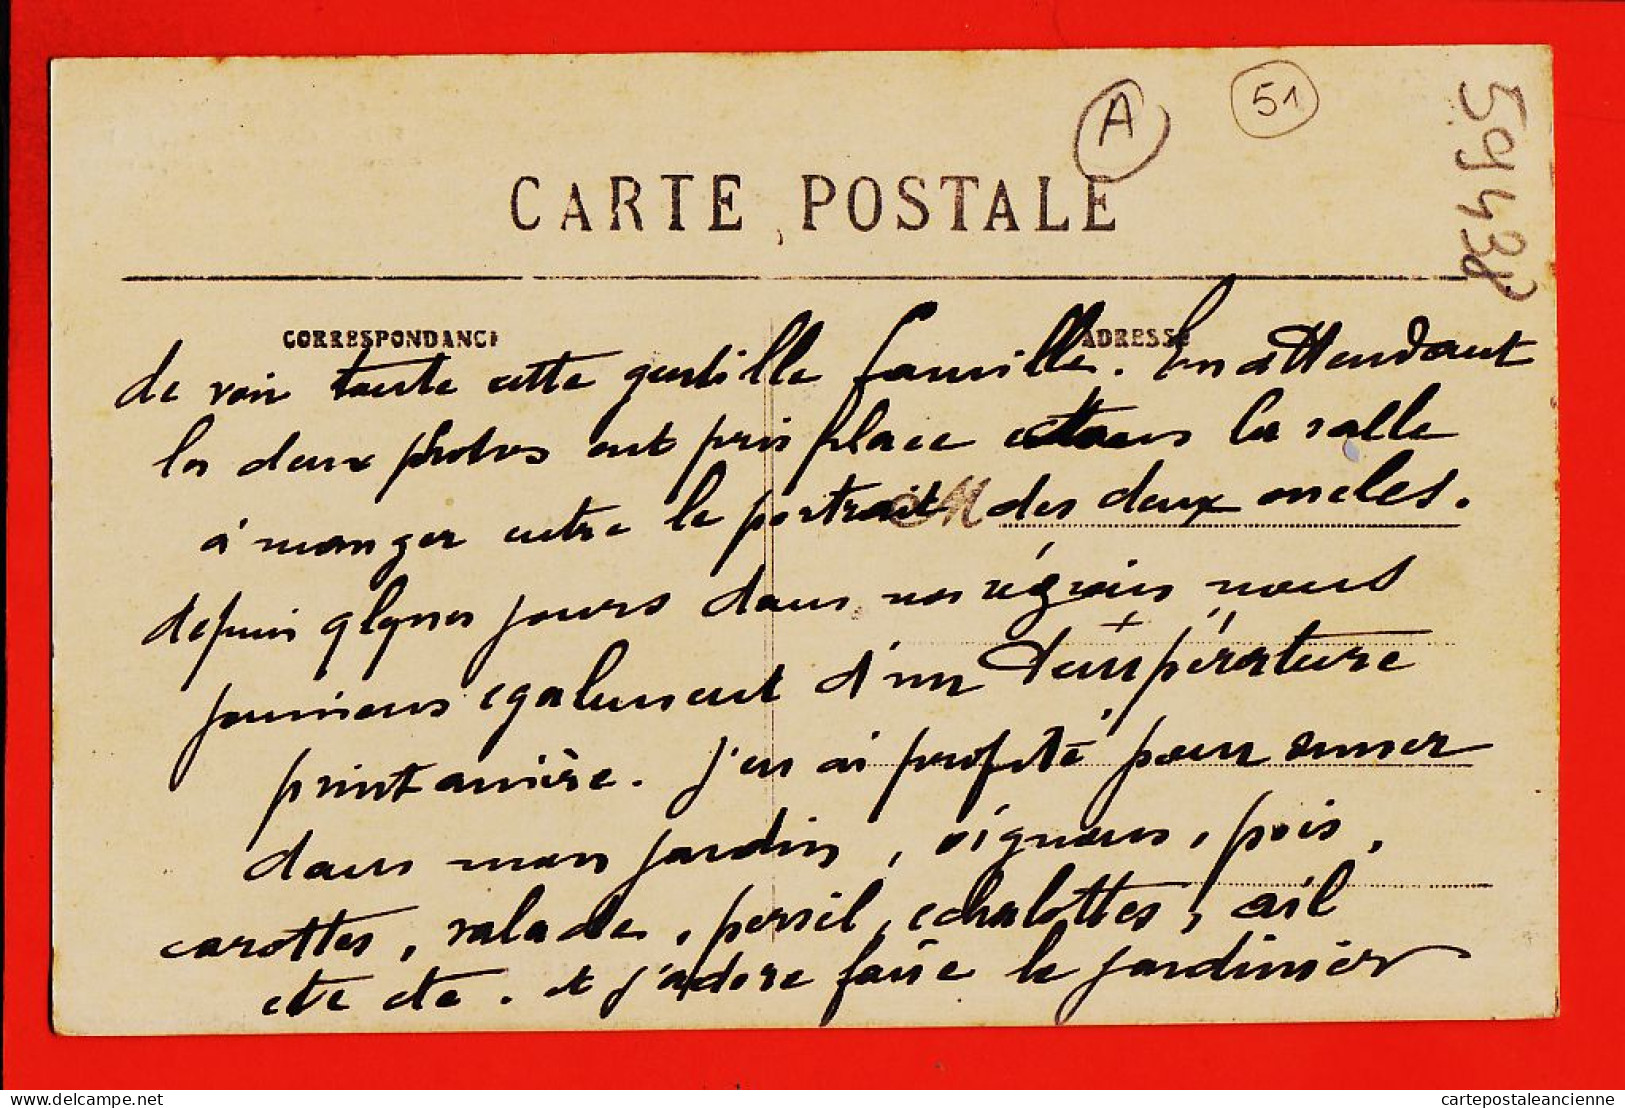 A
51
59438
CARTE POSTALE
CORRESPONDANCE
ADRESSE
de voir toute cette gentille famille. En attendant
les deux photos ont pris place dans la salle
à manger entre le portrait des deux oncles.
M
depuis qlques jours dans nos régions nous
jouissons également d'un température
printanière. J'en ai profité pour semer
dans mon jardin, oignons, pois,
carottes, salades, persil, echalottes, ail
etc etc. et j'adore faire le jardinier
delcampe.net
cartepostaleancienne